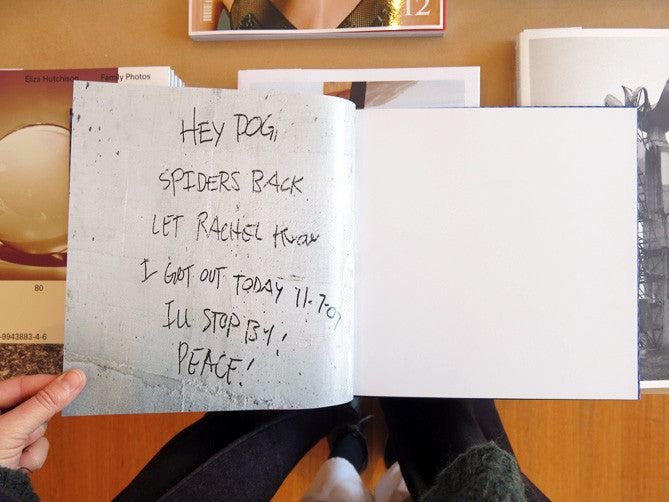 12
Eliza Hutchison
Family Photos
HEY DOG,
SPIDERS BACK
LET RACHEL KNOW
I GOT OUT TODAY 11-7-07
ILL STOP BY!
PEACE!
80
-9943883-4-6